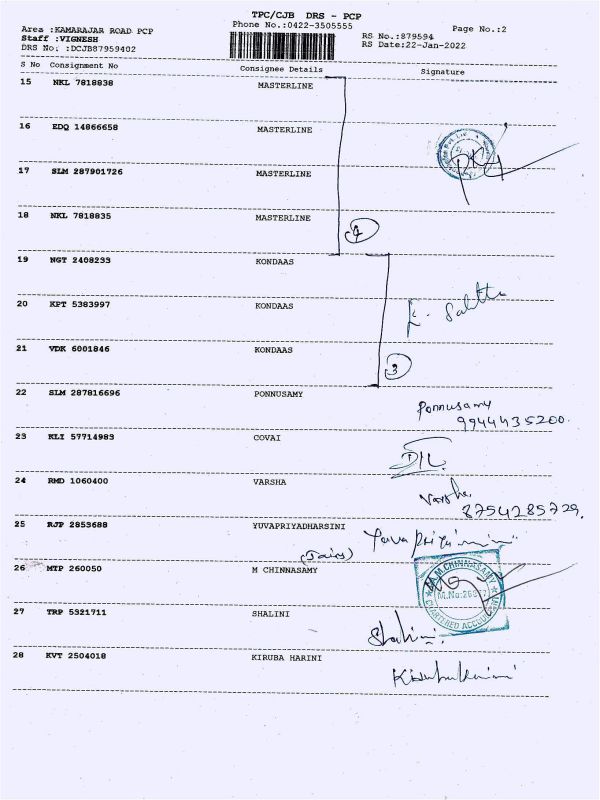 TPC/CJB DRS - PCP
Area :KAMARAJAR ROAD PCP Phone No.:0422-3505555 Page No.:2
Staff :VIGNESH RS No.:879594
DRS No. :DCJB87959402 RS Date:22-Jan-2022
S No Consignment No Consignee Details Signature
15 NKL 7818838 MASTERLINE
16 EDQ 14866658 MASTERLINE
17 SLM 287901726 MASTERLINE
18 NKL 7818835 MASTERLINE
4
19 NGT 2408233 KONDAAS
20 KPT 5383997 KONDAAS
21 VDK 6001846 KONDAAS
3
22 SLM 287816696 PONNUSAMY Ponnusamy
9944435200.
23 KLI 57714983 COVAI
24 RMD 1060400 VARSHA Varsha
8754285729.
25 RJP 2853688 YUVAPRIYADHARSINI
26 MTP 260050 M CHINNASAMY
M.M.CHINNASAMY
CHARTERED ACCOUNTANT
27 TRP 5321711 SHALINI Shalini
28 KVT 2504018 KIRUBA HARINI